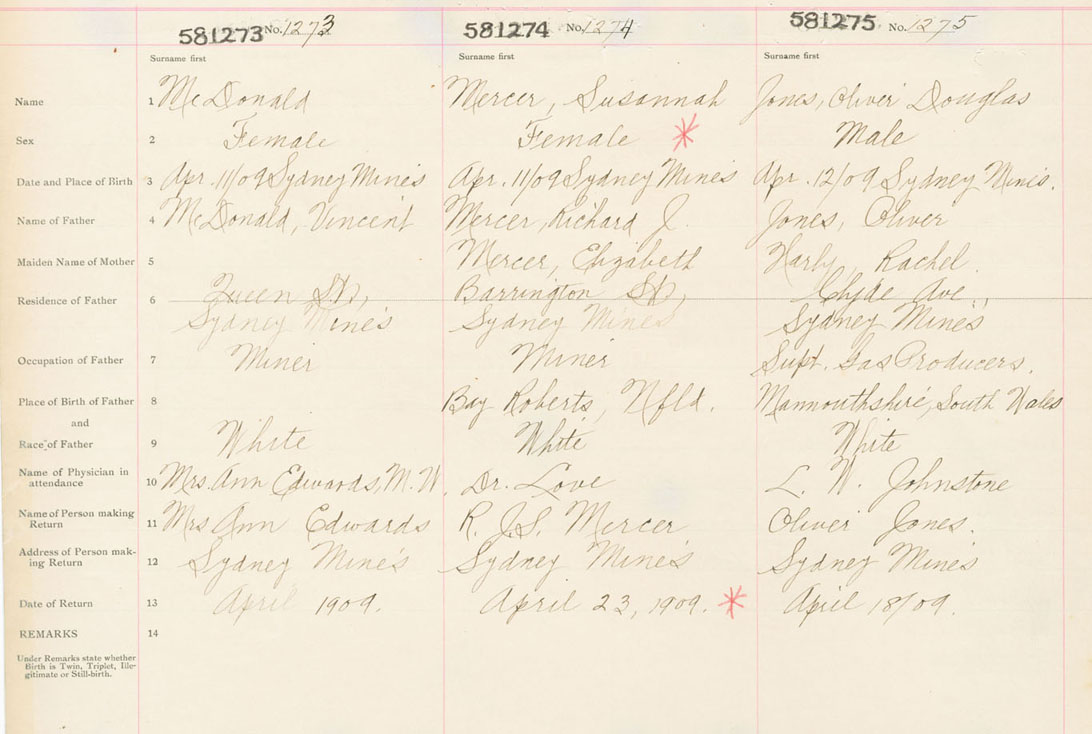 581273 No. 1273 581274 No. 1274 581275 No. 1275
Surname first Surname first Surname first
Name 1 McDonald Mercer, Susannah Jones, Oliver Douglas
Sex 2 Female Female Male
Date and Place of Birth 3 Apr. 11/09 Sydney Mines Apr. 11/09 Sydney Mines Apr. 12/09 Sydney Mines.
Name of Father 4 McDonald, Vincent Mercer, Richard J. Jones, Oliver
Maiden Name of Mother 5 Mercer, Elizabeth Rachel.
Residence of Father 6 Queen St, Barrington St, Clyde Ave.,
Sydney Mines Sydney Mines Sydney Mines
Occupation of Father 7 Miner Miner Supt. Gas Producers.
Place of Birth of Father 8 Bay Roberts, Nfld. Manmouthshire, South Wales
and
Race of Father 9 White White White
Name of Physician in
attendance 10 Mrs. Ann Edwards, M.W. Dr. Love L. W. Johnstone
Name of Person making
Return 11 Mrs Ann Edwards R. J.S. Mercer Oliver Jones.
Address of Person mak-
ing Return 12 Sydney Mines Sydney Mines Sydney Mines
Date of Return 13 April 1909. April 23, 1909. April 18/09.
REMARKS 14
Under Remarks state whether
Birth is Twin, Triplet, Ille-
gitimate or Still-birth.